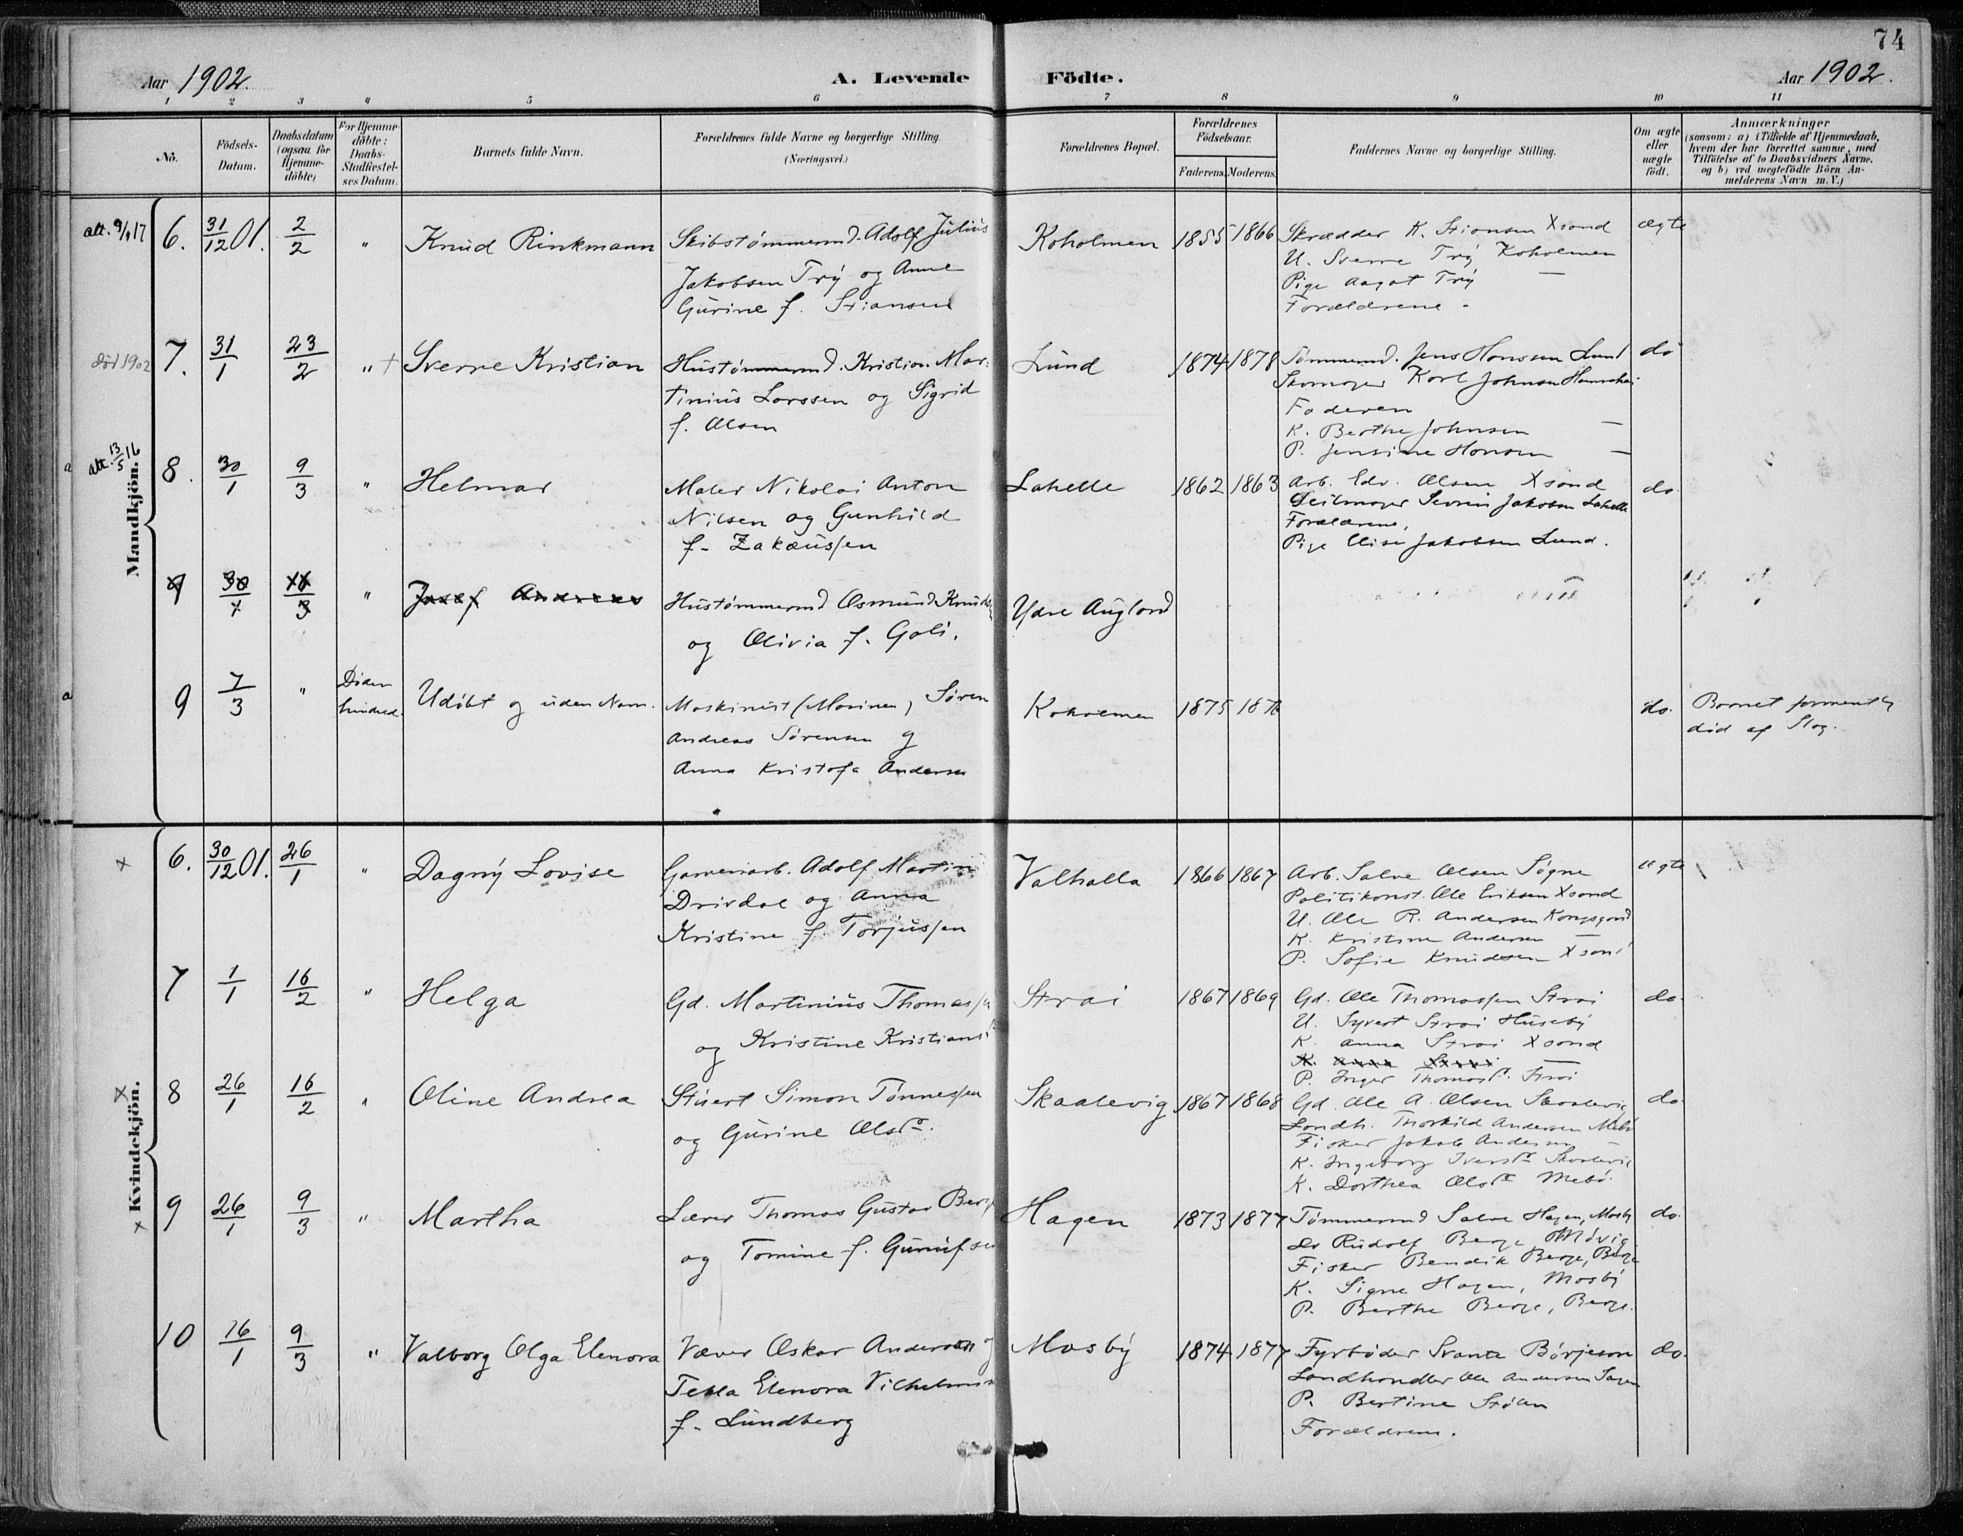 74
Aar 1902.
A. Levende Födte.
Aar 1902.
1 2 3 4 5 6 7 8 9 10 11
No.
Födsels-Datum.
Daabsdatum (ogsaa for Hjemme-döbte)
For Hjemme-döbte: Daabs-Stadfæstel-ses Datum.
Barnets fulde Navn.
Forældrenes fulde Navne og borgerlige Stilling.
(Næringsvei.)
Forældrenes Bopæl.
Forældrenes Födselsaar.
Faderens. Moderens.
Faddernes Navne og borgerlige Stilling.
Om ægte eller uægte födt.
Anmærkninger
(saasom: a) i Tilfælde af Hjemmedaab,
hvem der har forrettet samme, med
Tilföielse af to Daabsvidners Navne.
og b) ved uægtefödte Börn An-
melderens Navn m. V.)
Mandkjön.
6. 31/12 01. 2/2 " Knud Rinkmann
Skibstømmermd. Adolf Julius
Jakobsen Trÿ og Anne
Gurine f. Stiansen
Koholmen 1855 1866
Skrædder K. Stiansen Xsand
U. Sverre Trÿ Koholmen
Pige Aagot Trÿ —
Forældrene.
ægte
død 1902 7. 31/1 23/2 " + Sverre Kristian
Hustømmermd. Kristian Mar-
tinius Larssen og Sigrid
f. Olsen
Lund 1874 1878
Tømmermd. Jens Hanssen Lund
Skomager Karl Johnsen
Faderen
K. Berthe Johnsen —
P. Jensine Hansen —
do
att. 13/5 16 8. 30/1 9/3 " Helmar
Maler Nikolai Anton
Nilsen og Gunhild
f. Zakæussen
Lahelle 1862 1863
Arb. Edv. Olsen Xsand
Seilmager Severin Jakobsen Lahelle
Forældrene,
Pige Elise Jakobsen Lund.
do.
9 30/1 3 " Josef Andreas
Hustømmermd Osmund Knuds
og Olivia f. Gali.
Ydre Augland
9 7/3 " Udøbt og uden Navn.
Maskinist (Marinen) Søren
Andreas Sørensen og
Anna Kristofa Andersen
Koholmen 1875
do.
Barnet
død af Slag.
Kvindekjön.
6. 30/12 01. 26/1 " Dagnÿ Lovise
Garveriarb. Adolf Martin
Drivdal og Anna
Kristine f. Torjussen
Valhalla 1866 1867
Arb. Salve Olsen Søgne
Politikonst. Ole Eriksen Xsand
U. Ole R. Andersen Kongsgard
K. Kristine Andersen —
P. Sofie Knudsen Xsand
ægte
7 1/1 16/2 " Helga
Gd. Martinius Thomassen
og Kristine Kristians
Strai 1867 1869
Gd. Ole Thomassen Strai
U. Syvert Strai Husebÿ
K. Anna Strai Xsand
K. Anna Strai
P. Inger Thomasd. Strai
do.
8 26/1 16/2 " Oline Andrea
Stuert Simon Tønnessen
og Gurine Olsd.
Skaalevig 1867 1868
Gd. Ole A. Olsen Skaalevig
Landh. Thorkild Andersen Mebø
Fisker Jakob Andersen —
K. Ingeborg Iversd. Skaalevig
K. Dorthea Olsd. Mebø.
do
9 26/1 9/3 " Martha
Lærer Thomas Gustav Berge
og Tomine f. Gunufsen
Hagen 1873 1877
Tømmermd Salve Hagen, Mosb
Do Rudolf Berge
Fisker Bendik Berge, Berge
K. Signe Hagen, Mosbÿ
P. Berthe Berge, Berge.
do.
10 16/1 9/3 " Valborg Olga Elenora
Væver Oskar Andersen og
Tekla Elenora Vilhelmin
f. Lundberg
Mosbÿ 1874 1877
Fyrbøder Svante Börjeson
Landhandler Ole Andersen
P. Bertine Stölen
Forældrene.
do.